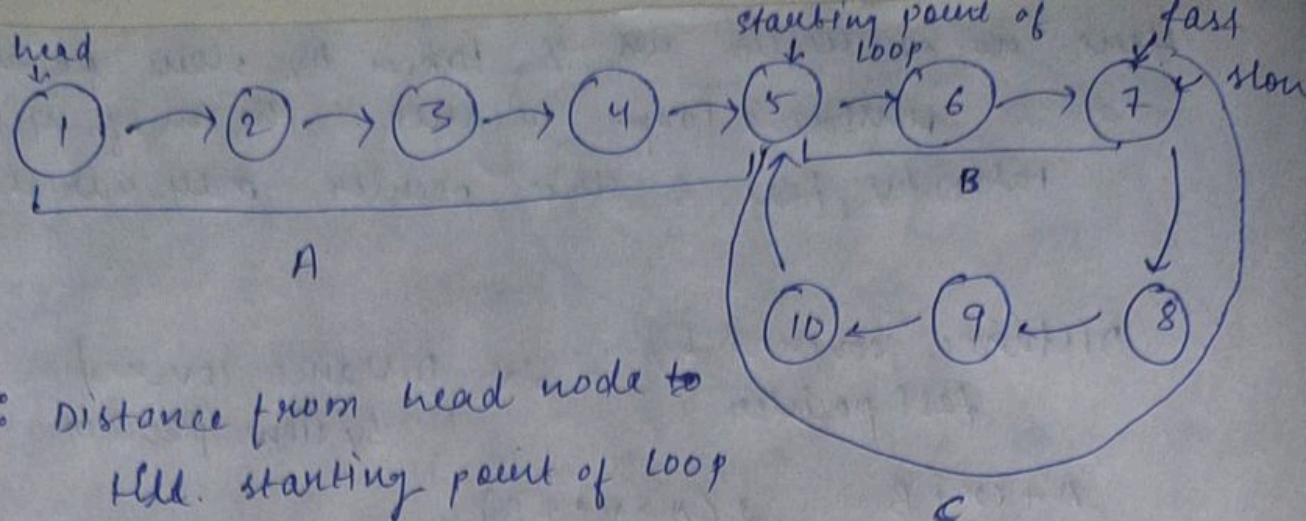 head
starting point of
loop
fast
slow
1 2 3 4 5 6 7
B
A
10 9 8
: Distance from head node to
till. starting point of loop
C